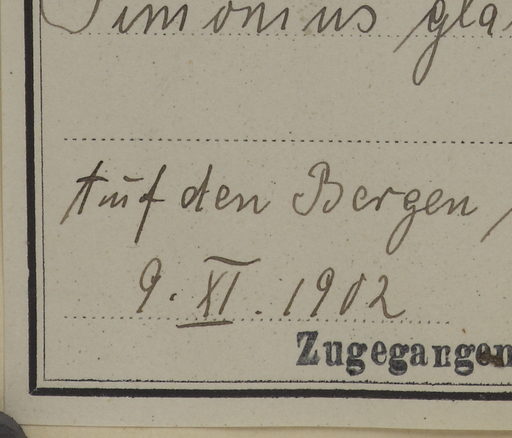 Simonius gla
Auf den Bergen
9. XI. 1902
Zugegangen